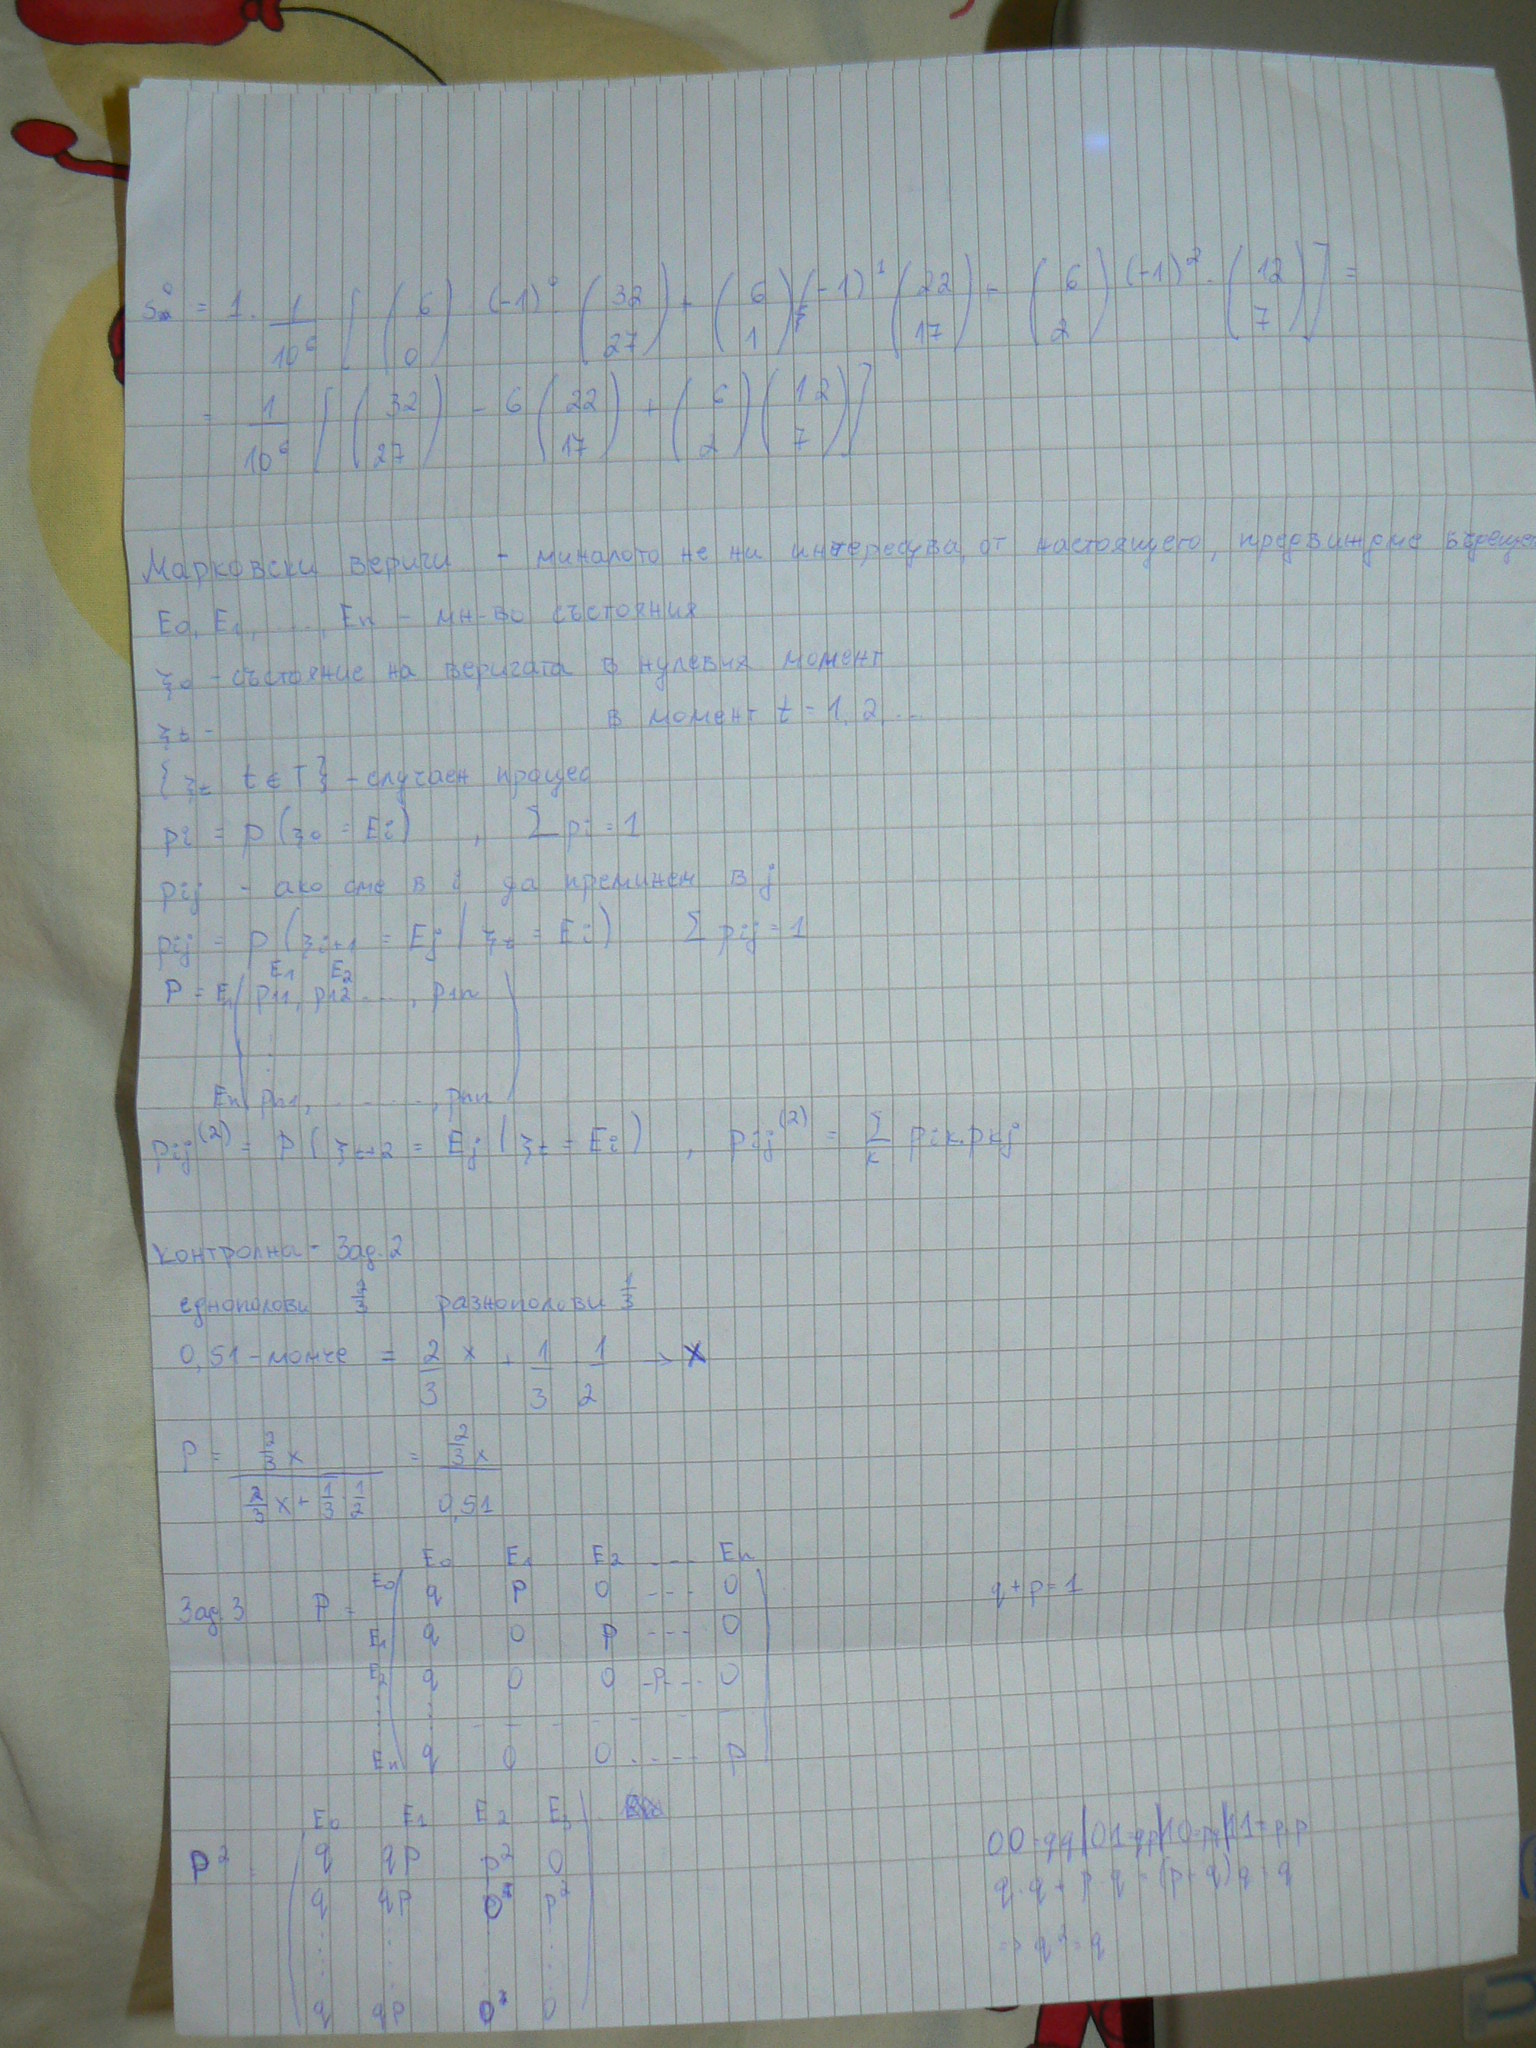 = 1 . 1/10^6 [ (6 0) (-1)^0 (32 27) + (6 1) (-1)^1 (22 17) + (6 2) (-1)^2 . (12 7) ] =
= 1/10^6 [ (32 27) - 6 (22 17) + (6 2) (12 7) ]
Марковски вериги - миналото не ни интересува, от настоящето, предвиждаме
E0, E1, ...., En - мн-во състояния
ξ0 - състояние на веригата в нулевия момент
ξt - в момент t = 1, 2, ...
{ξt t ∈ T} - случаен процес
pi = p(ξ0 = Ei) , Σ pi = 1
pij - ако сме в i да преминем в j
pij = p(ξt+1 = Ej / ξt = Ei) Σ pij = 1
E1 E2
P = E1 ( p11, p12 ...., p1n )
En pn1, ......., pnn
pij^(2) = P(ξt+2 = Ej / ξt = Ei) , pij^(2) = Σ k pik.pkj
Контролна - Зад. 2
еднополови 2/3 разнополови 1/3
0,51 - момче = 2/3 x + 1/3 1/2 → x
P = 2/3 x / (2/3 x + 1/3 . 1/2) = 2/3 x / 0,51
E0 E1 E2 .... En
Зад. 3 P = E0 q p 0 .... 0 q + p = 1
E1 q 0 p .... 0
E2 q 0 0 -p--- 0
En q 0 0 ..... p
E0 E1 E2 E3
P^2 = q qp p^2 0
q qp 0 p^2
q qp 0 0
00 = qq | 01 = qp | 10 = pq | 11 = p.p
q.q + p.q = (p+q) q = q
=> q^2 = q